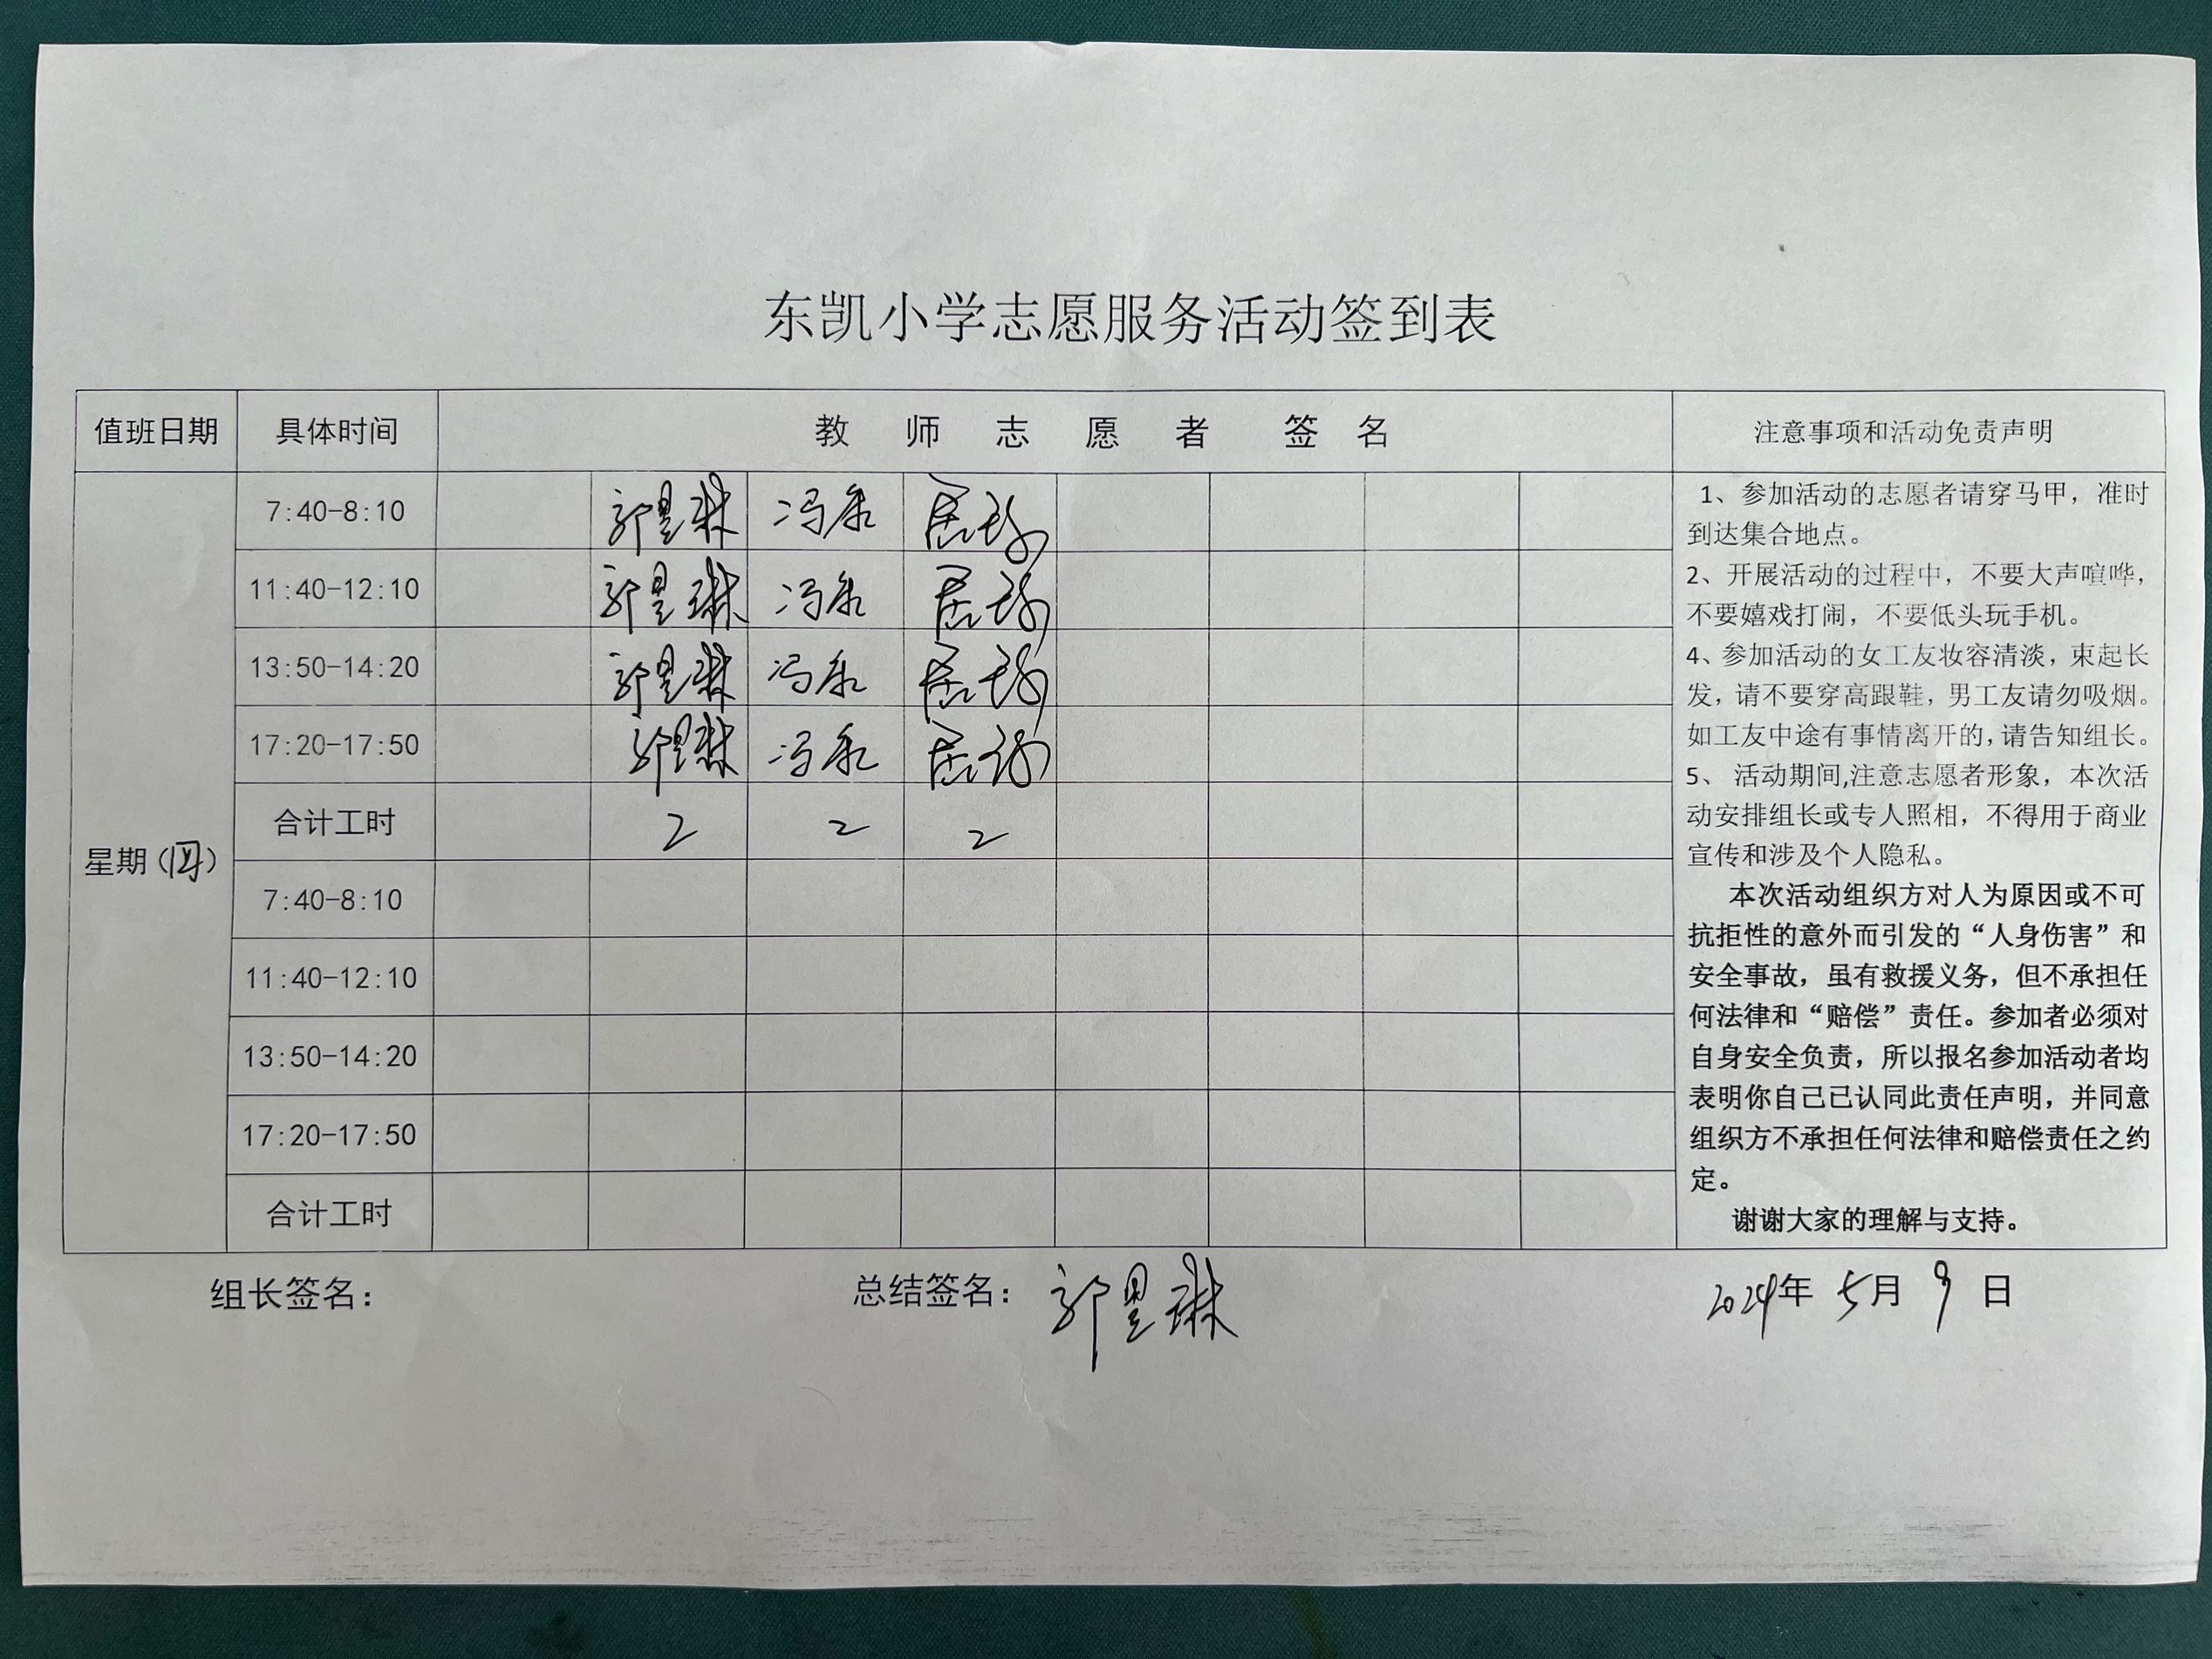 东凯小学志愿服务活动签到表
值班日期 具体时间 教师志愿者 签名 注意事项和活动免责声明
星期(四)
7:40-8:10 郭昱琳 冯
11:40-12:10 郭昱琳 冯
13:50-14:20 郭昱琳 冯
17:20-17:50 郭昱琳 冯
合计工时 2 2 2
7:40-8:10
11:40-12:10
13:50-14:20
17:20-17:50
合计工时
1、参加活动的志愿者请穿马甲，准时
到达集合地点。
2、开展活动的过程中，不要大声喧哗，
不要嬉戏打闹，不要低头玩手机。
4、参加活动的女工友妆容清淡，束起长
发，请不要穿高跟鞋，男工友请勿吸烟。
如工友中途有事情离开的，请告知组长。
5、 活动期间,注意志愿者形象，本次活
动安排组长或专人照相，不得用于商业
宣传和涉及个人隐私。
本次活动组织方对人为原因或不可
抗拒性的意外而引发的“人身伤害”和
安全事故，虽有救援义务，但不承担任
何法律和“赔偿”责任。参加者必须对
自身安全负责，所以报名参加活动者均
表明你自己已认同此责任声明，并同意
组织方不承担任何法律和赔偿责任之约
定。
谢谢大家的理解与支持。
组长签名： 总结签名：郭昱琳 2024年 5月 9日